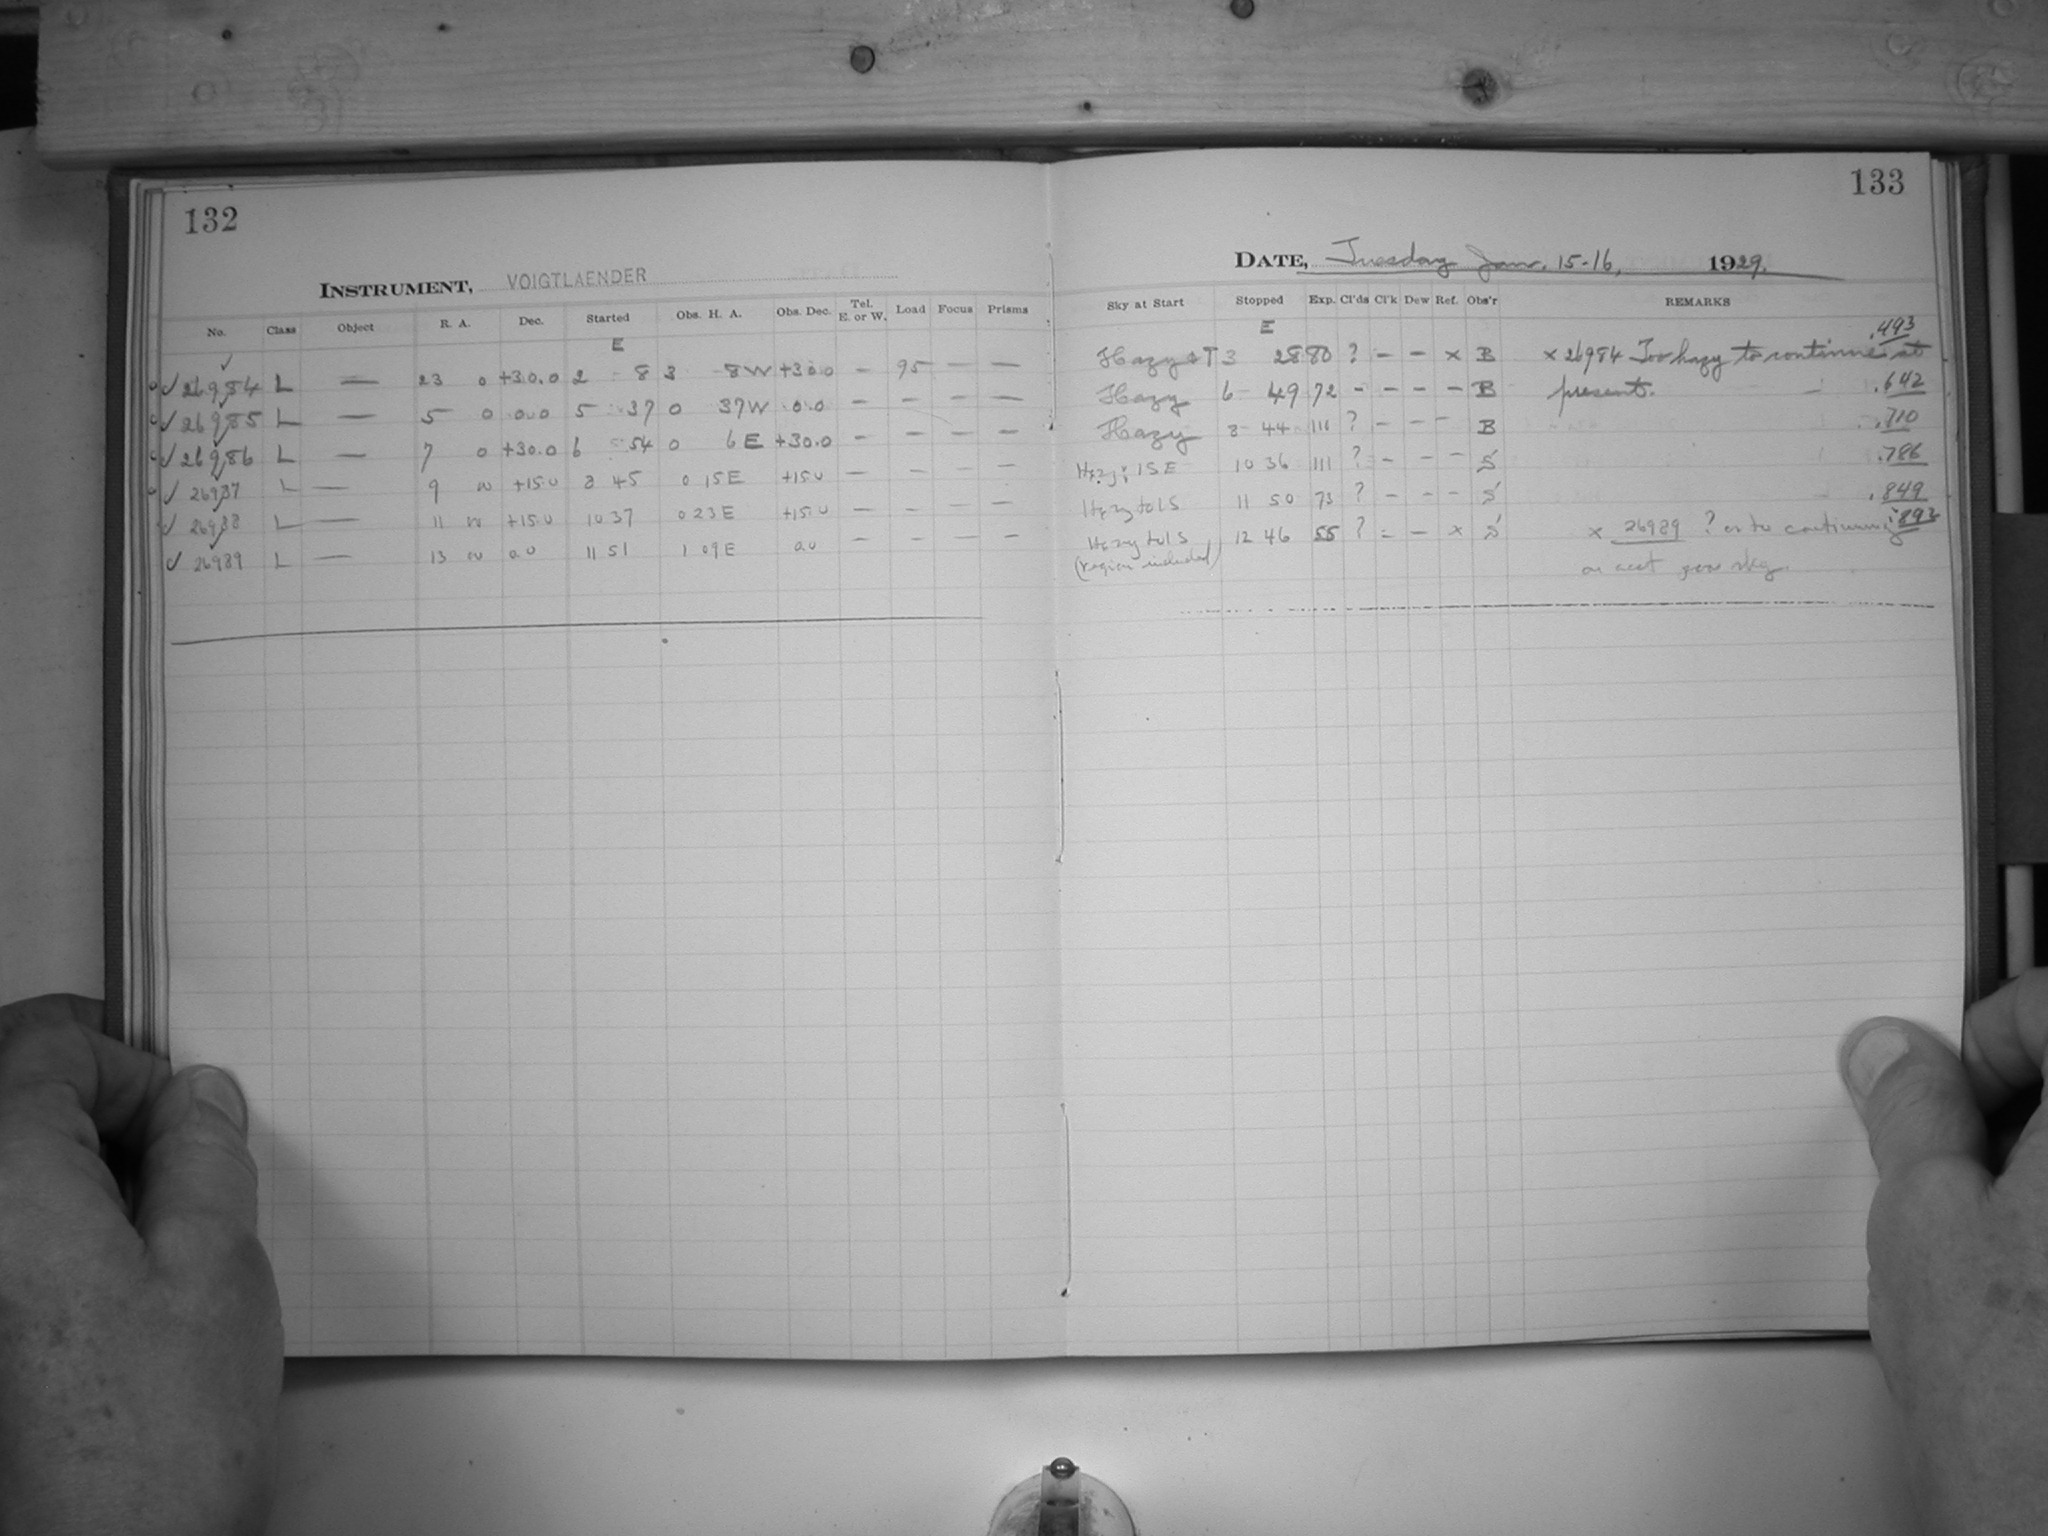 132
INSTRUMENT, VOIGTLAENDER
No. Class Object R. A. Dec. Started Obs. H. A. Obs. Dec. Tel. E. or W. Load Focus Prisms
E
✓ 26984 L — 23 0 +30.0 2 8 3 8W +30.0 — 95 — —
✓ 26985 L — 5 0 0.0 5 37 0 37W 0.0 — — — —
✓ 26986 L — 7 0 +30.0 6 54 0 6E +30.0 — — — —
✓ 26987 L — 9 0 +15.0 8 45 0 15E +15.0 — — — —
✓ 26988 L — 11 0 +15.0 10 37 0 23E +15.0 — — — —
✓ 26989 L — 13 0 0.0 11 51 1 09E 0.0 — — — —
133
DATE, Tuesday Jan. 15-16, 1929.
Sky at Start Stopped Exp. Cl'ds Cl'k Dew Ref. Obs'r REMARKS
E
.493
Hazy & T 3 28 80 ? — — x B x 26984 Too hazy to continue at
Hazy 6 49 72 — — — — B present. .642
Hazy 8 44 110 ? — — — B .710
10 36 111 ? — — — S .786
Hazy to LS 11 50 73 ? — — — S .849
Hazy to LS 12 46 55 ? — — x S x 26989 ? continuing .893
(region included) poor sky.